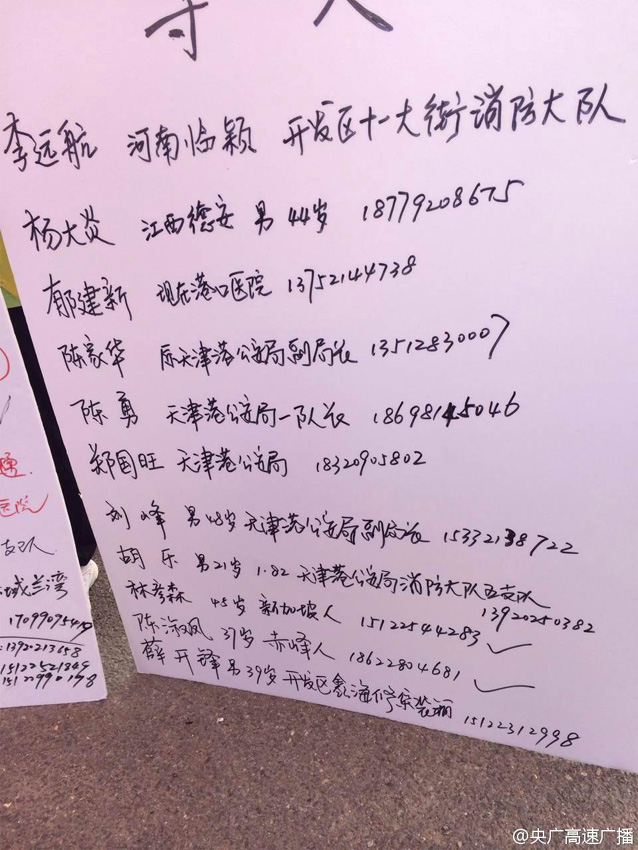 寻人
李远航 河南临颍 开发区十一大街消防大队
杨大炎 江西德安 男 44岁 18779208675
郁建新 现在港口医院 13752144738
陈家华 原天津港公安局副局长 13512830007
陈勇 天津港公安局一队长 18698145046
郑国旺 天津港公安局 18320905802
刘峰 男48岁 天津港公安局副局长 15332138722
胡乐 男21岁 1.82 天津港公安局消防大队五支队 13920250382
林彦森 45岁 新加坡人 15122544283 ✓
陈淑凤 37岁 赤峰人 18622804681 ✓
薛开锋 男39岁 开发区鑫海 15122312998
医院
支队
城兰湾
1392213658
15122521349
15122990178
@央广高速广播